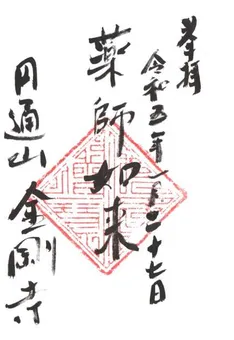 奉拝
令和五年一月二十七日
薬師如来
円通山 金剛寺